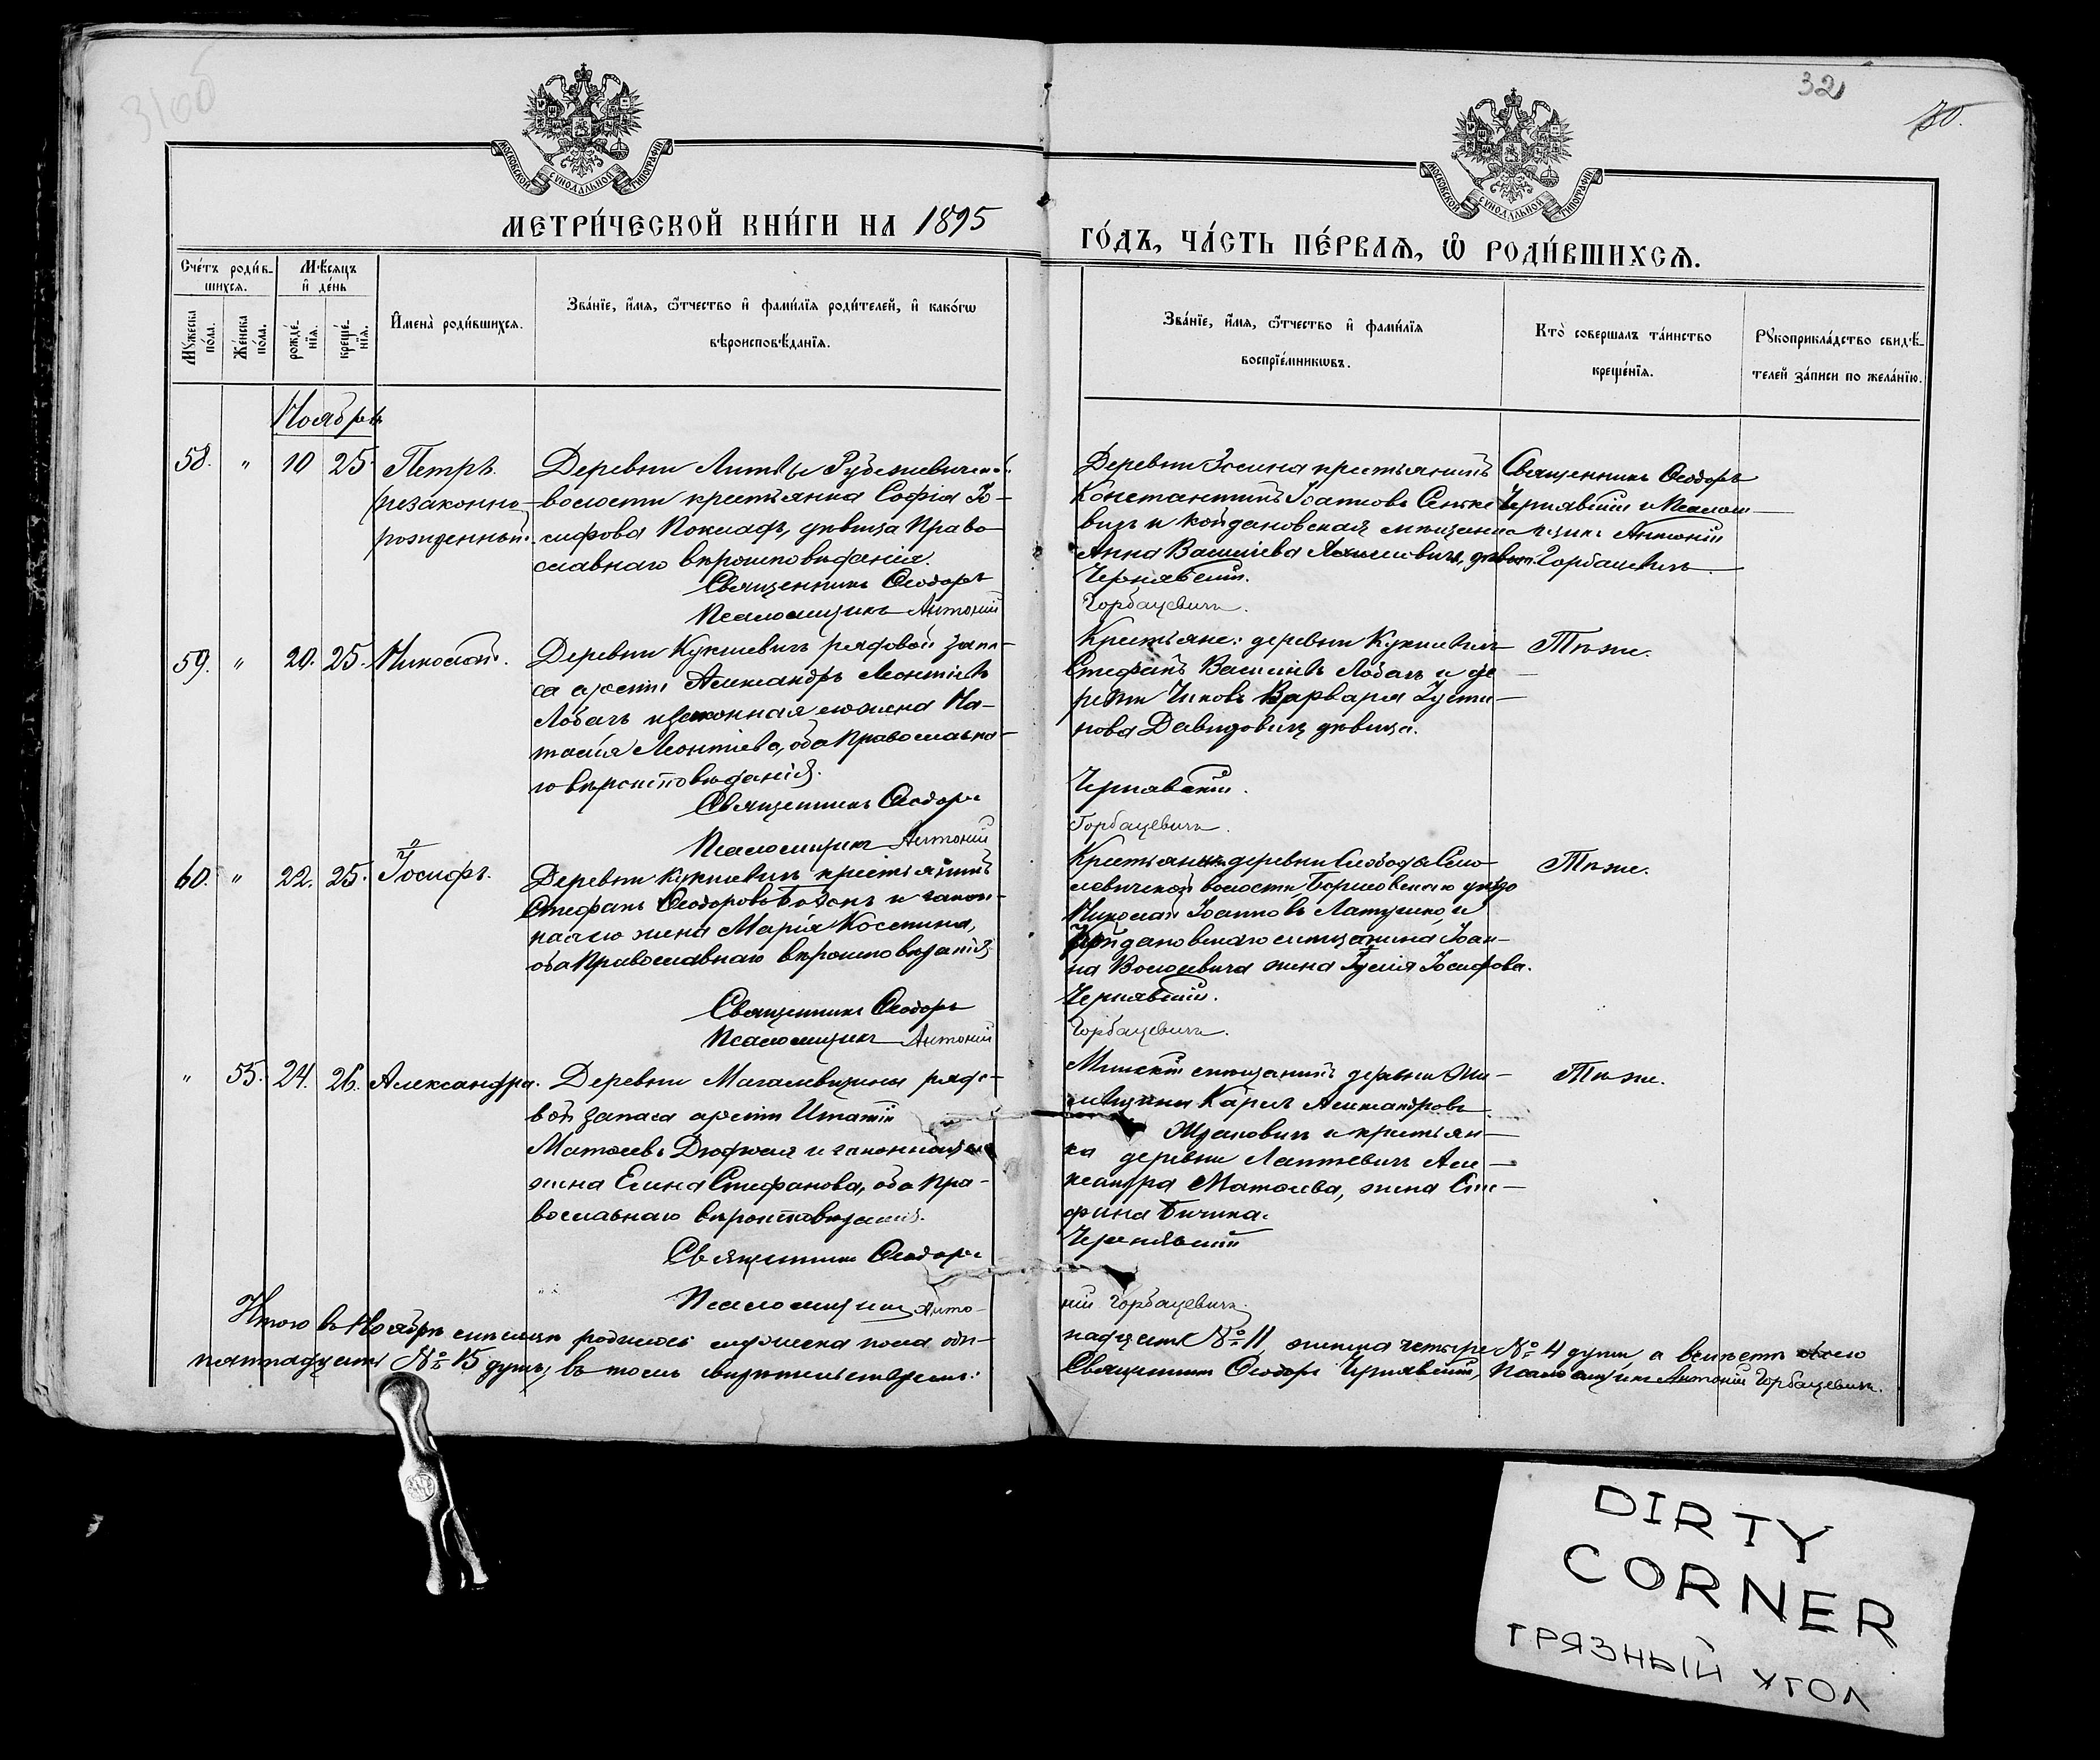 32
30.
МОСКОВСКОЙ СѴНОДАЛЬНОЙ ТИПОГРАФІИ
МОСКОВСКОЙ СѴНОДАЛЬНОЙ ТИПОГРАФІИ
МЕТРИ́ЧЕСКОЙ КНИ́ГИ НА 1895
ГО́ДЪ, ЧА́СТЬ ПЕ́РВАѦ, Ѽ РОДИ́ВШИХСѦ.
Сче́тъ роди́в-
шихсѧ.
Мꙋ́жеска по́ла.
Же́нска по́ла.
Мѣ́сяцъ
и҆ де́нь
рожде́-
нїѧ.
креще́-
нїѧ.
И҆мена̀ роди́вшихсѧ.
Зва́нїе, и҆́мѧ, ѻ҆́тчество и҆ фами́лїѧ роди́телей, и҆ како́гѡ
вѣроисповѣ́данїѧ.
Зва́нїе, и҆́мѧ, ѻ҆́тчество и҆ фами́лїѧ
воспрїе́мникѡвъ.
Кто̀ совершалъ та́инство
креще́нїѧ.
Рꙋкоприкла́дство свидѣ́-
телей за́писи по жела́нїю.
Ноябрь
58. " 10 25. Петръ.
(незаконно-
рожденный.
Деревни
волости крестьянка Софія Іо-
сифова девица Право-
славнаго вѣроисповѣданія.
Священникъ Ѳеодоръ
Псаломщикъ Антоній
Деревни крестьянинъ
Константинъ Іоанновъ Сенке-
вичъ и Койдановская мещанка
Анна Васильева
Чернявскій.
Горбацевичъ.
Священникъ Ѳеодоръ
Чернявскій и Псалом-
щикъ Антоній
Горбацевичъ
59. " 20. 25. Николай.
Деревни Кукшевичъ рядовой запа-
са арміи Александръ Леонтіевъ
Лобачъ и законная его жена На-
талія Леонтіева, оба Православна-
го вѣроисповѣданія.
Священникъ Ѳеодоръ
Псаломщикъ Антоній
Крестьяне: деревни Кукшевичъ
Стефанъ Васильевъ Лобачъ и де-
ревни Чиковъ Варвара Іусти-
нова Давидовичъ девица.
Чернявскій.
Горбацевичъ.
Тѣ же.
60. " 22. 25. Іосифъ.
Деревни Кукшевичъ крестьянинъ
Стефанъ Ѳеодоровъ и закон-
ная его жена Марія
оба Православнаго вѣроисповѣданія
Священникъ Ѳеодоръ
Псаломщикъ Антоній
Крестьянинъ деревни Слобода Смо-
левичской волости, Борисовскаго уѣзда
Николай Іоанновъ Латушко и
Койдановскаго мещанина Іоан-
на жена Юлія Іосифова.
Чернявскій.
Горбацевичъ.
Тѣ же.
" 55. 24. 26. Александра.
Деревни рядо-
вой запаса арміи Игнатій
Матѳеевъ и законная его
жена Елена Стефанова, оба Пра-
вославнаго вѣроисповѣданія.
Священникъ Ѳеодоръ
Псаломщикъ Анто-
Минскій мещанинъ деревни
Карлъ Александровъ
Ждановичъ и крестьян-
ка деревни Лаптевичъ Але-
ксандра Матѳеева, жена Сте-
фана Бичика.
Чернявскій
ній Горбацевичъ.
Тѣ же.
Итого въ Ноябрѣ мѣсяцѣ родилось мужеска пола оди-
надцать № 11, женска четыре № 4 души, а всего обоего
пятнадцать № 15 душъ, въ томъ свидѣтельствуемъ:
Священникъ Ѳеодоръ Чернявскій, Псаломщикъ Антоній Горбацевичъ.
DIRTY
CORNER
ГРЯЗНЫЙ УГОЛ